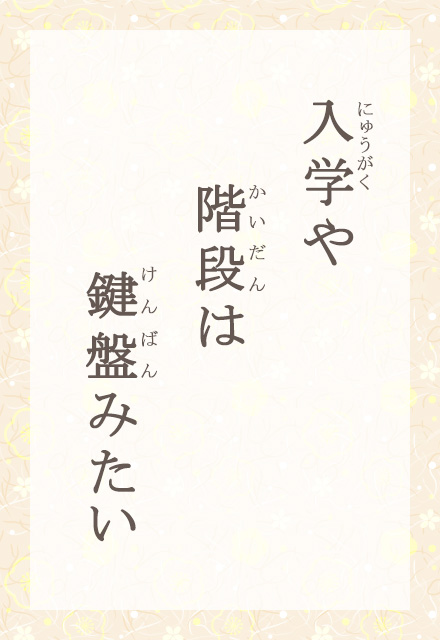 入学や
階段は
鍵盤みたい
にゅうがく
かいだん
けんばん